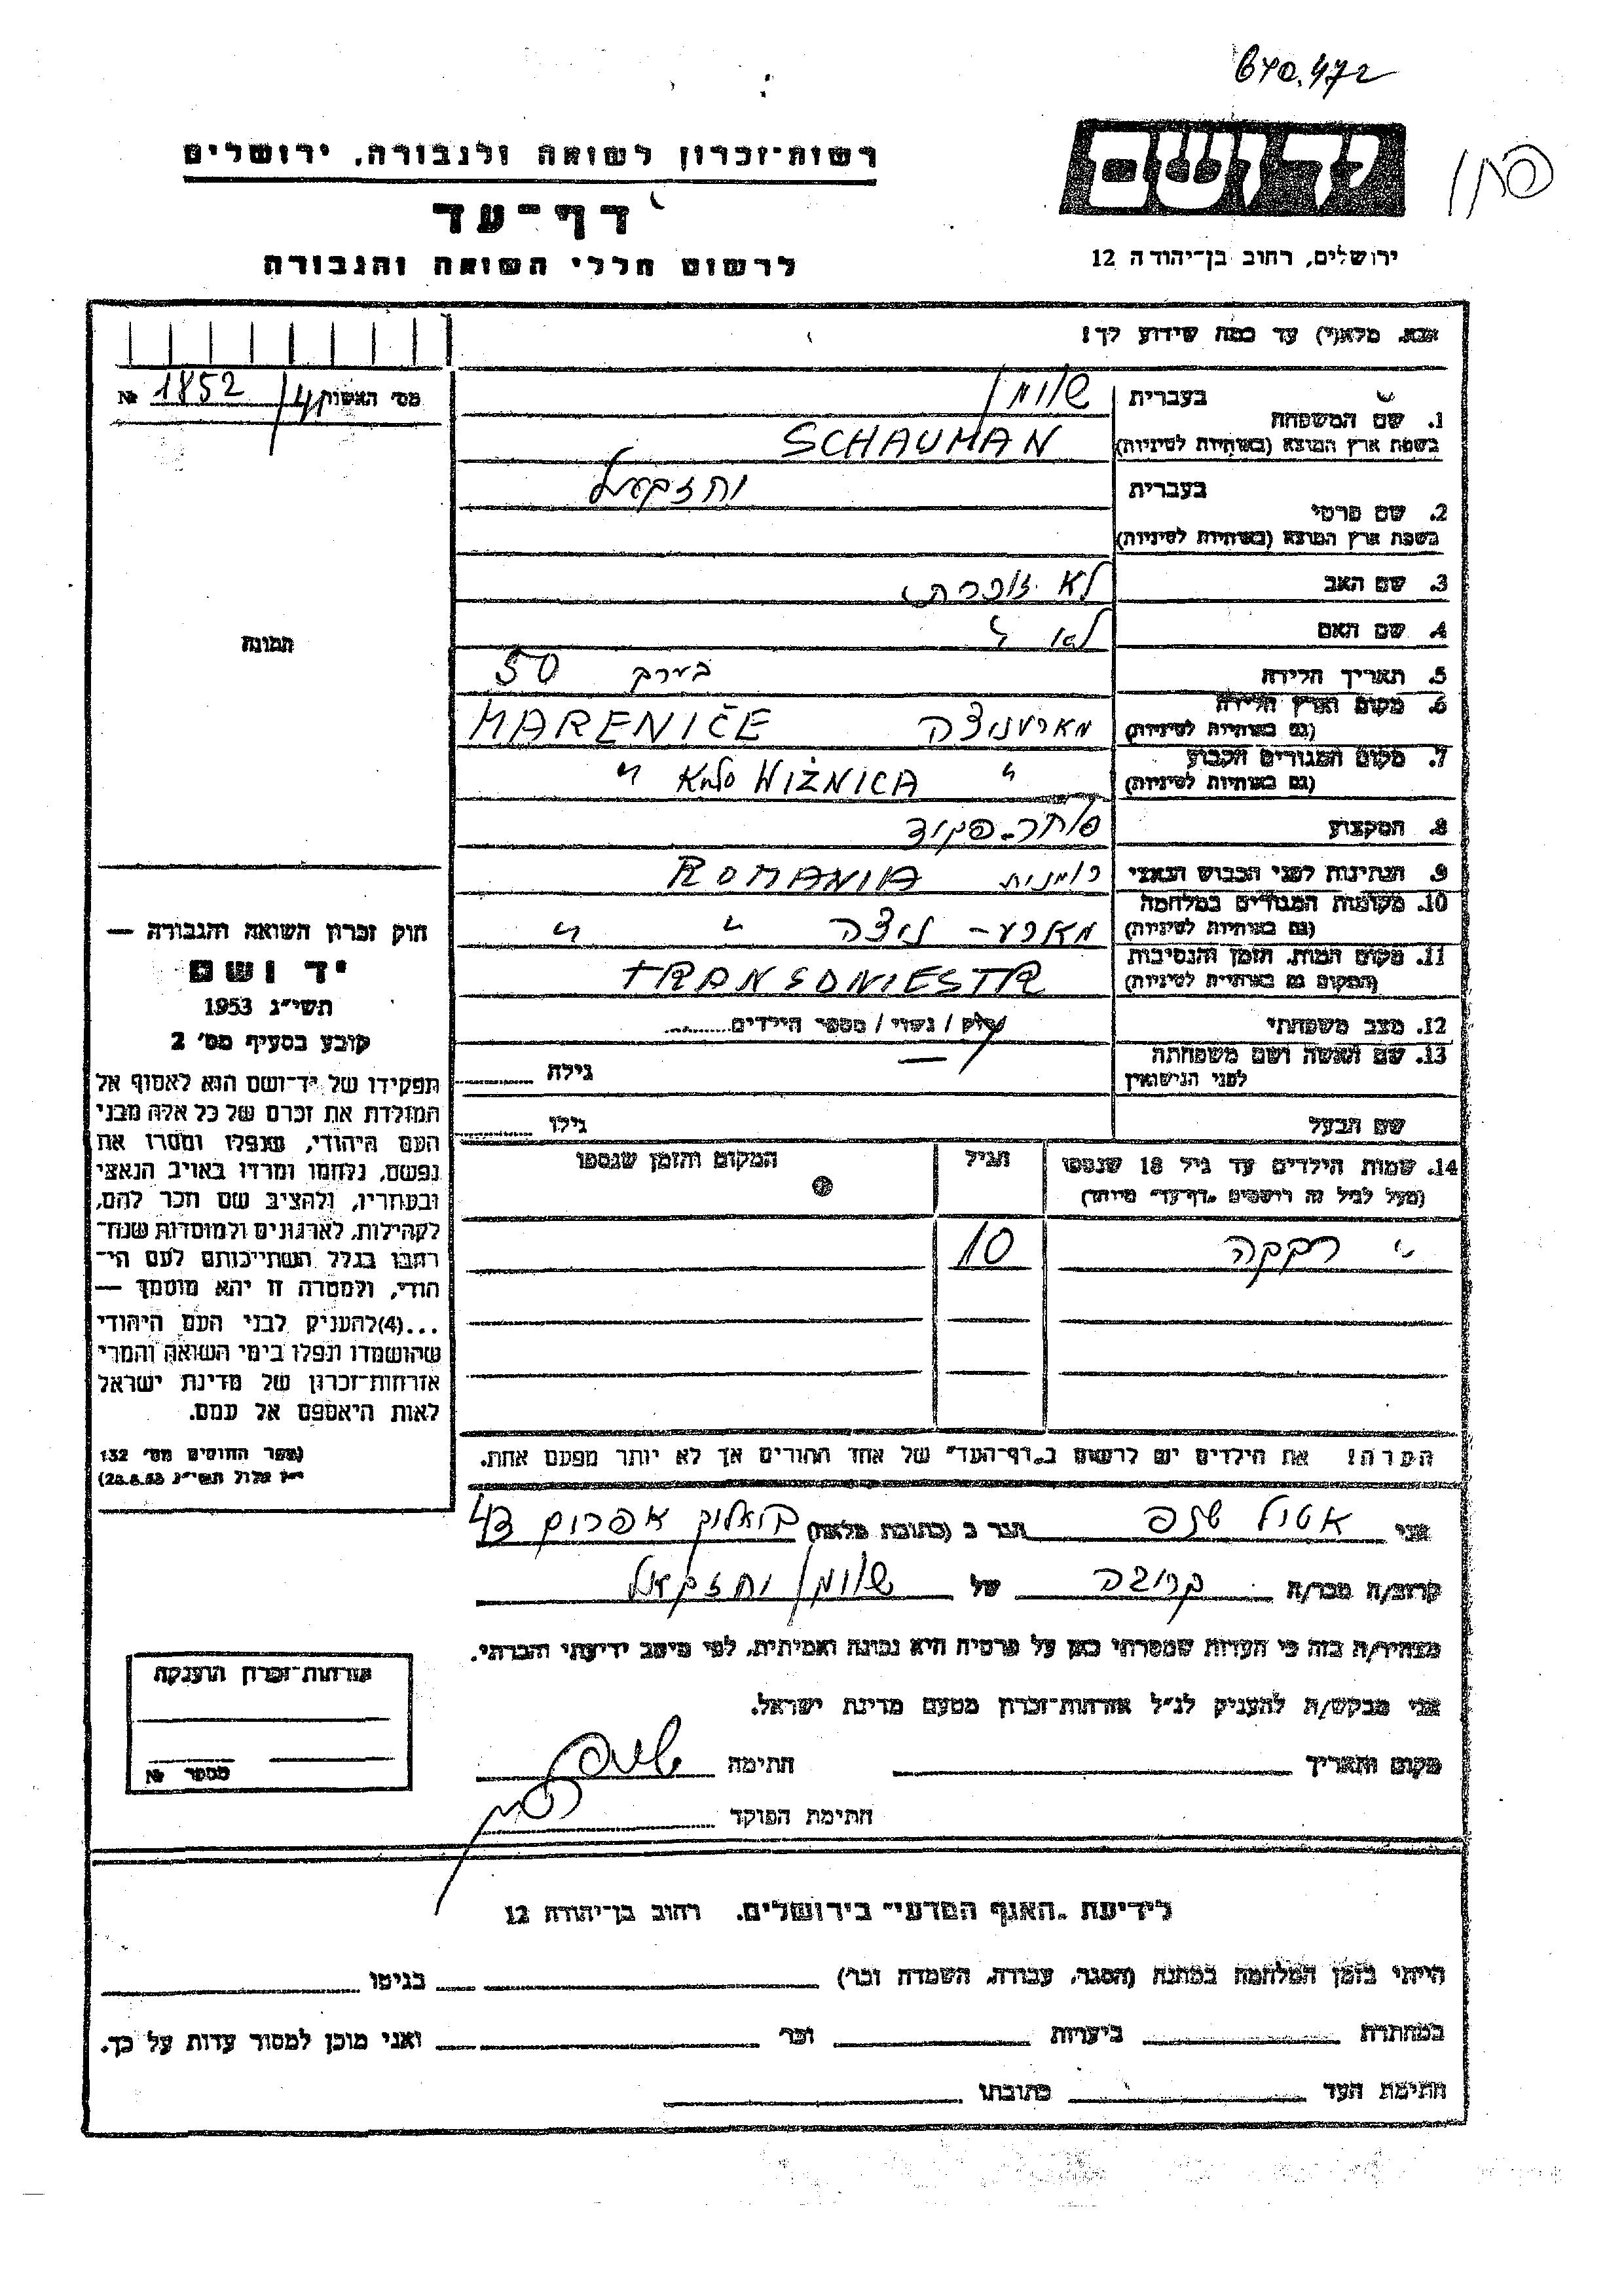 640.472
רשות־זכרון לשואה ולגבורה, ירושלים
דף־עד
לרשום חללי השואה והגבורה
ירושלים, רחוב בן־יהודה 12
אנא, מלא(י) עד כמה שידוע לך!
מס׳ האשות 41/ 1852 №
1. שם המשפחה בעברית שוומן
בשפת ארץ המוצא (באותיות לטיניות) SCHAUMAN
2. שם פרטי בעברית יחזקאל
בשפת ארץ המוצא (באותיות לטיניות)
3. שם האב לא זוכרת
4. שם האם לא "
תמונה
5. תאריך הלידה בערך 50
6. מקום וארץ הלידה
(גם באותיות לטיניות) MARENIČE
7. מקום המגורים הקבוע
(גם באותיות לטיניות) " WIŻNICA אצל "
8. המקצוע סוחר־פקיד
9. הנתינות לפני הכבוש הנאצי רומנית ROMANIA
10. מקומות המגורים במלחמה
(גם באותיות לטיניות) " "
11. מקום המות, הזמן והנסיבות
(המקום גם באותיות לטיניות) TRANSDNIESTR
12. מצב משפחתי רווק / נשוי / מספר הילדים
13. שם האשה ושם משפחתה
לפני הנישואין — גילה
שם הבעל גילו
14. שמות הילדים עד גיל 18 שנספו הגיל המקום והזמן שנספו
(מעל לגיל זה רושמים „דף־עד״ מיוחד)
" רבקה 10
הערה! את הילדים יש לרשום ב„דף־העד״ של אחד ההורים אך לא יותר מפעם אחת.
חוק זכרון השואה והגבורה —
יד ושם
תשי״ג 1953
קובע בסעיף מס׳ 2
תפקידו של יד־ושם הוא לאסוף אל
המולדת את זכרם של כל אלה מבני
העם היהודי, שנפלו ומסרו את
נפשם, נלחמו ומרדו באויב הנאצי
ובעוזריו, ולהציב שם וזכר להם,
לקהילות, לארגונים ולמוסדות שנח־
רבו בגלל השתייכותם לעם הי־
הודי, ולמטרה זו יהא מוסמך —
...(4)להעניק לבני העם היהודי
שהושמדו ונפלו בימי השואה והמרי
אזרחות־זכרון של מדינת ישראל
לאות היאספם אל עמם.
(ספר החוקים מס׳ 132
י״ז אלול תשי״ג 28.8.53)
אני הגר ב (כתובת מלאה)
קרוב/ה מכר/ה קרובה של שוומן יחזקאל
מצהיר/ה בזה כי העדות שמסרתי כאן על פרטיה היא נכונה ואמיתית, לפי מיטב ידיעתי והכרתי.
אני מבקש/ת להעניק לנ״ל אזרחות־זכרון מטעם מדינת ישראל.
מקום ותאריך חתימה
חתימת הפוקד
אזרחות־זכרון הוענקה
מספר №
לידיעת „האגף המדעי״ בירושלים, רחוב בן־יהודה 12
הייתי בזמן המלחמה במחנה (הסגר, עבודה, השמדה וכו׳) בגיטו
במחתרת ביערות וכו׳ ואני מוכן למסור עדות על כך.
חתימת העד כתובתו